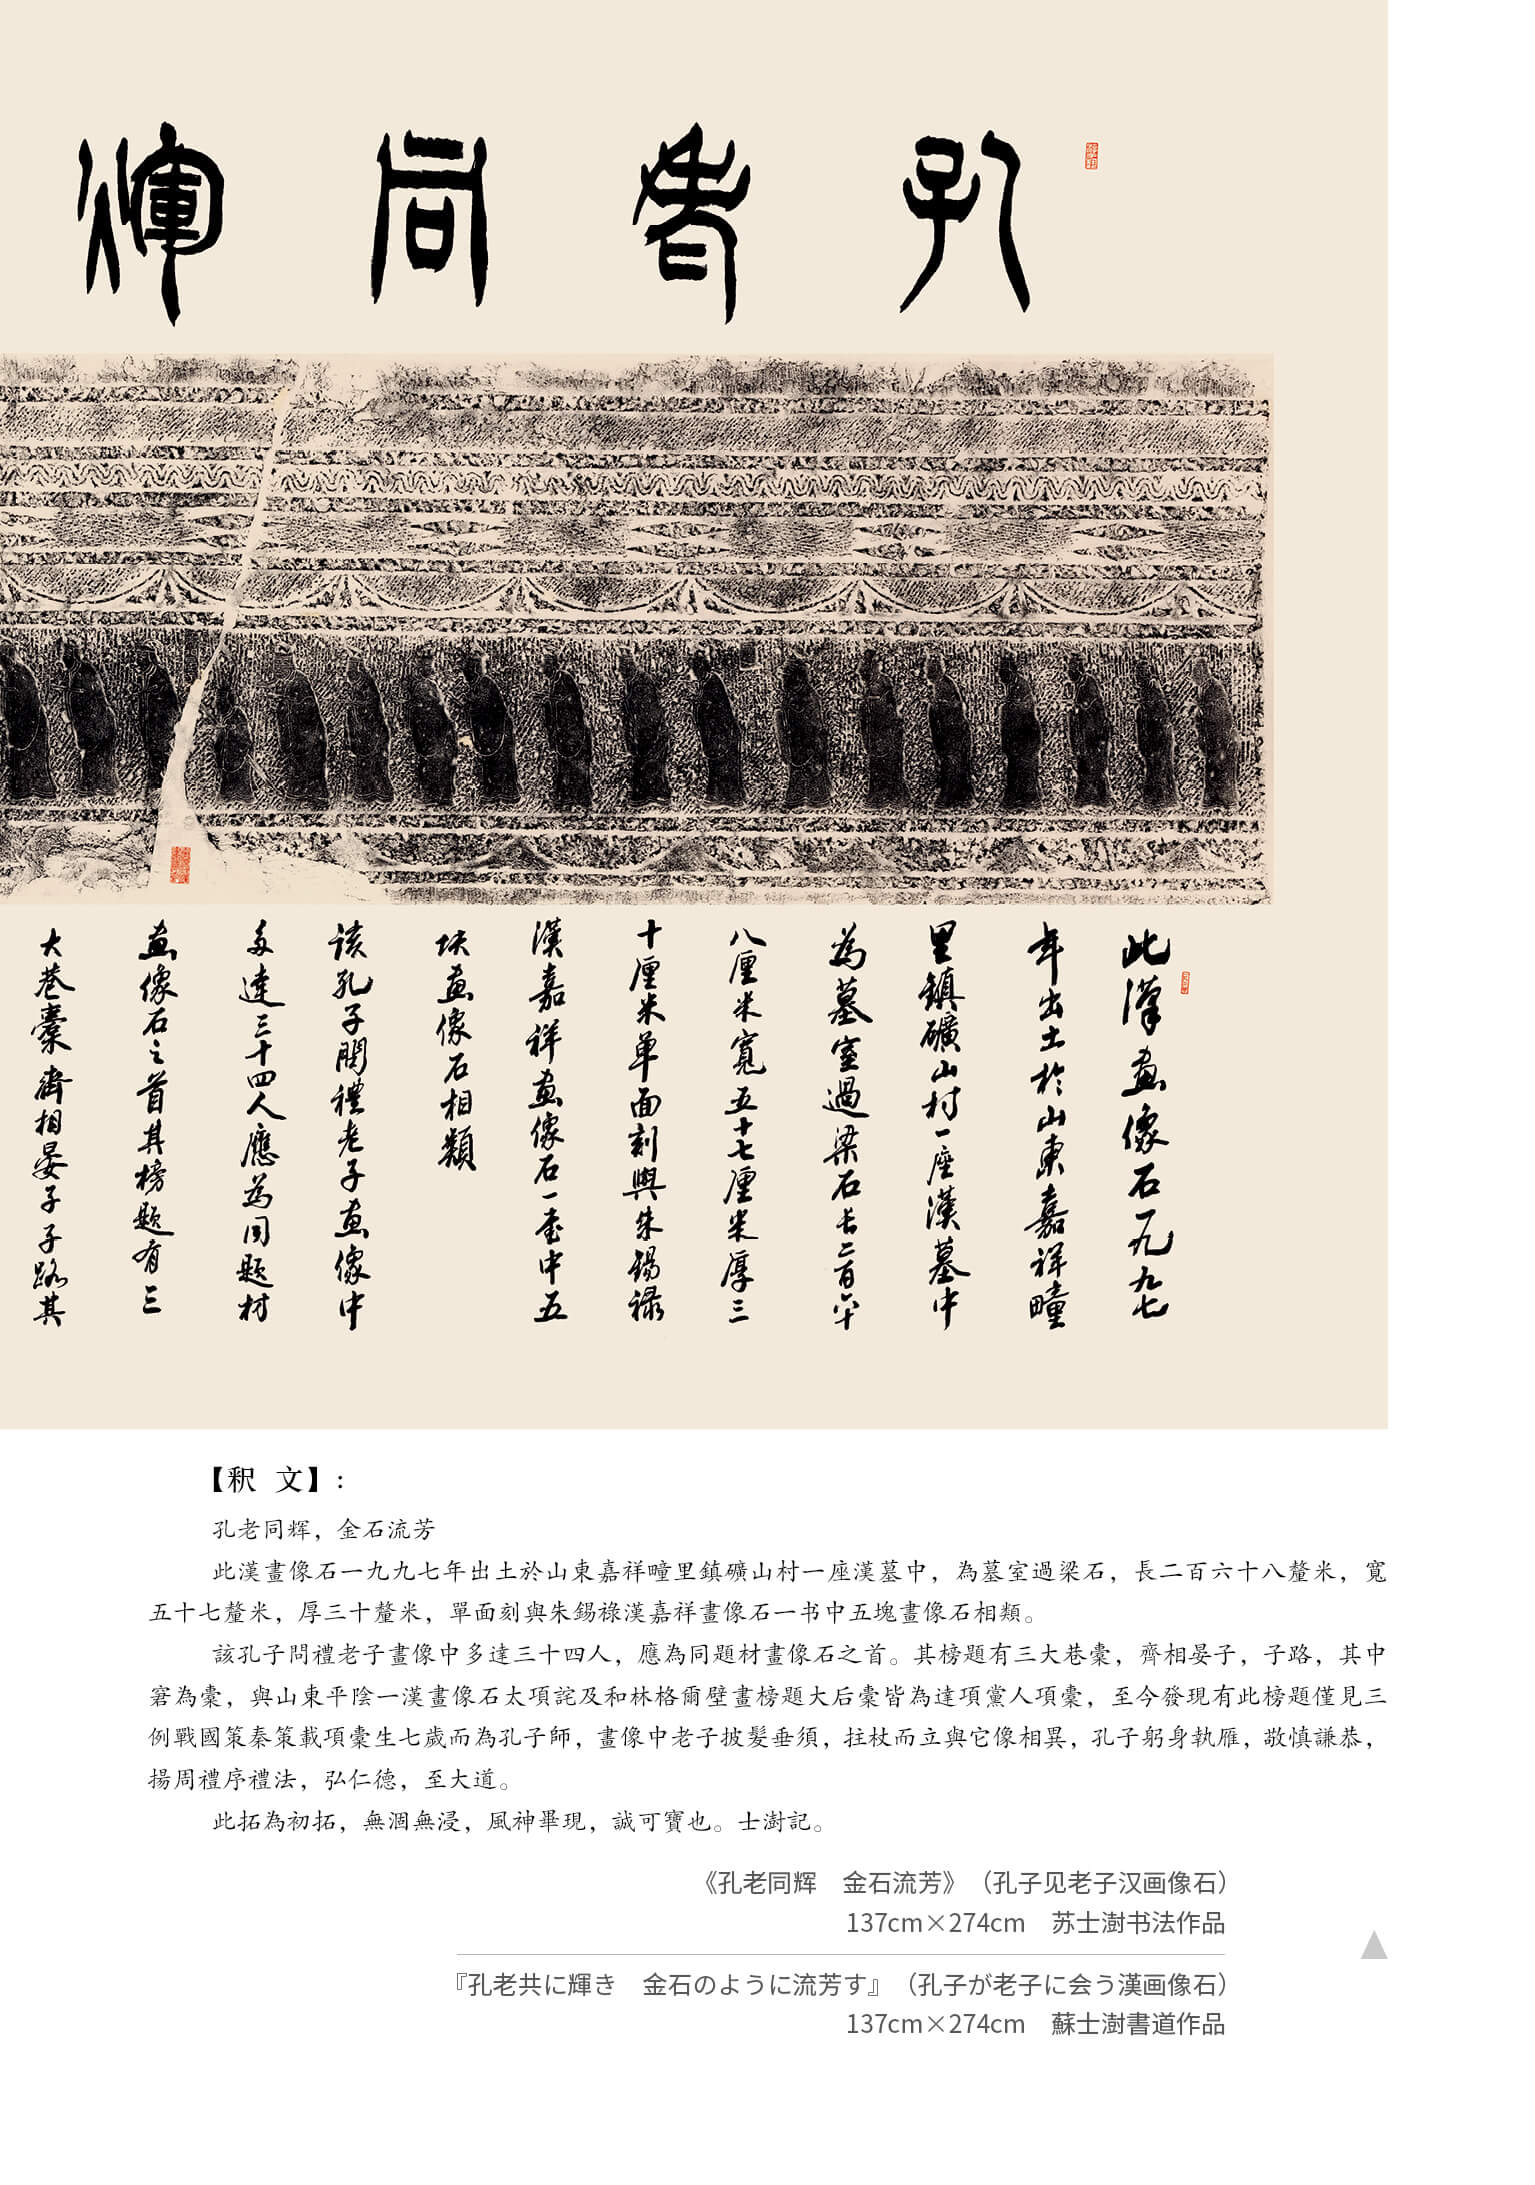 孔老同輝
此漢畫像石一九九七
年出土於山東嘉祥疃
里鎮礦山村一座漢墓中
為墓室過梁石長二百六十
八厘米寬五十七厘米厚三
十厘米單面刻與朱錫祿
漢嘉祥畫像石一書中五
块畫像石相類
該孔子問禮老子畫像中
多達三十四人應為同題材
畫像石之首其榜題有三
大巷橐齊相晏子子路其
【釈 文】:
孔老同辉，金石流芳
此漢畫像石一九九七年出土於山東嘉祥疃里鎮礦山村一座漢墓中，為墓室過梁石，長二百六十八釐米，寬
五十七釐米，厚三十釐米，單面刻與朱錫祿漢嘉祥畫像石一书中五塊畫像石相類。
該孔子問禮老子畫像中多達三十四人，應為同題材畫像石之首。其榜題有三大巷橐，齊相晏子，子路，其中
窘為橐，與山東平陰一漢畫像石太項詫及和林格爾壁畫榜題大后橐皆為達項黨人項橐，至今發現有此榜題僅見三
例戰國策秦策載項橐生七歲而為孔子師，畫像中老子披髮垂須，拄杖而立與它像相異，孔子躬身執雁，敬慎謙恭，
揚周禮序禮法，弘仁德，至大道。
此拓為初拓，無涸無浸，風神畢現，誠可寶也。士澍記。
《孔老同辉　金石流芳》（孔子见老子汉画像石）
137cm×274cm　苏士澍书法作品
『孔老共に輝き　金石のように流芳す』（孔子が老子に会う漢画像石）
137cm×274cm　蘇士澍書道作品